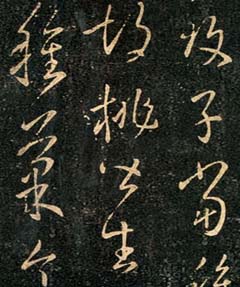 致子當種
胡桃皆生
種菓今